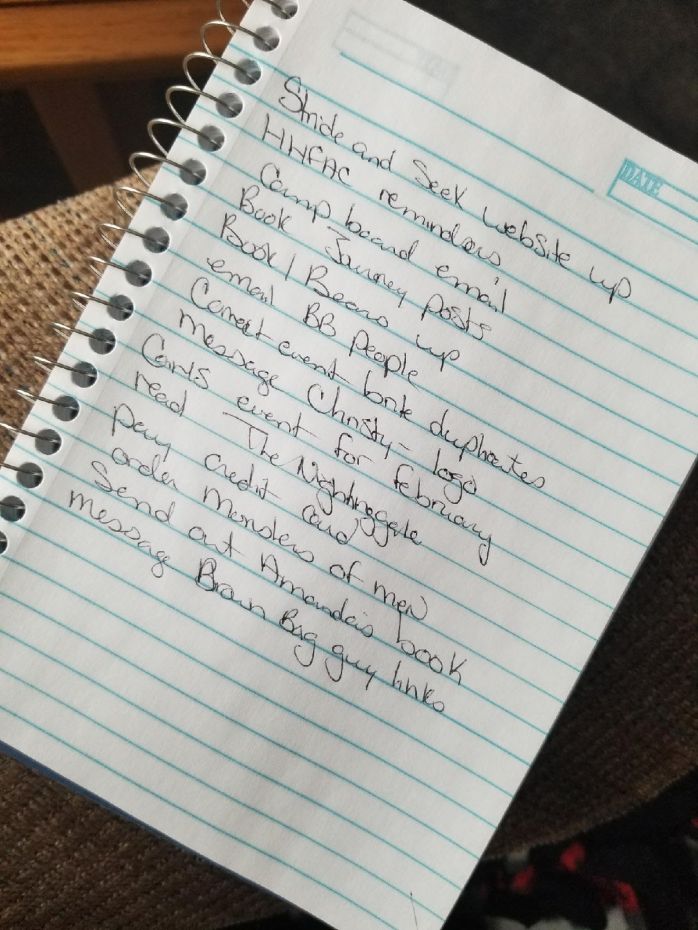 DATE
Stride and Seek website up
HHFAC reminders
Camp board email
Book Journey posts
Book/Bears up
email BB people
event brite duplicates
message Christy - logo
event for february
read The Nightinggale
pay credit card
order Monsters of men
Send out Amanda's book
message Brown Bag guy links